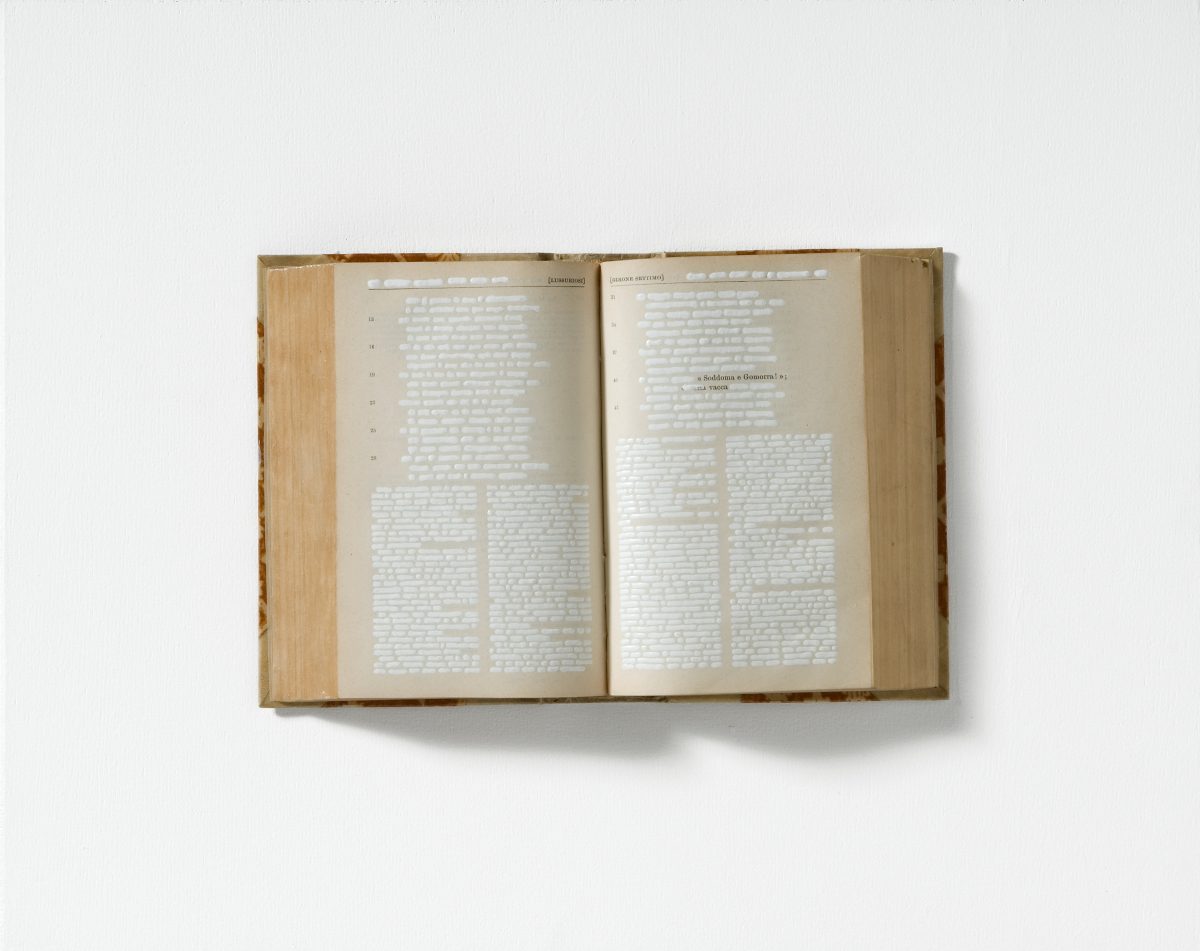 [LUSSURIOSI]
13
16
19
22
25
28
[GIRONE SETTIMO]
31
34
37
40 « Soddoma e Gomorra! »;
vacca
43